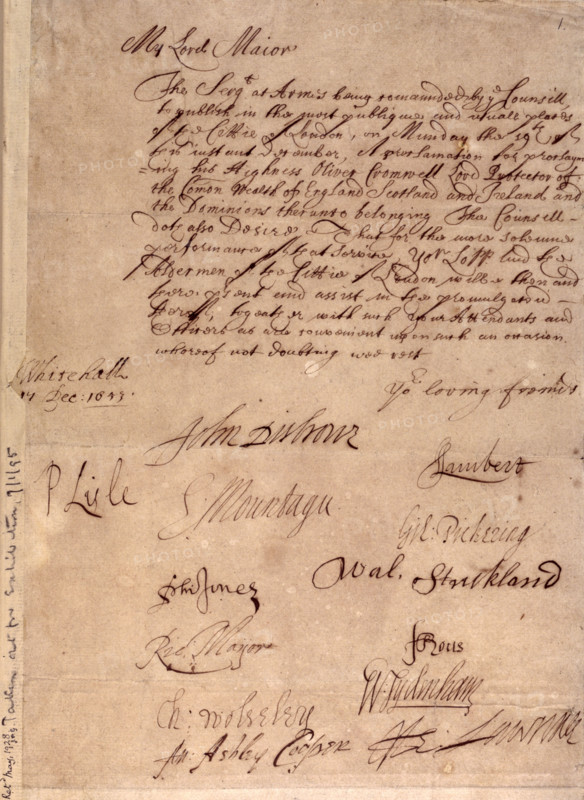 1.
My Lord Maior
The Sergt at Armes being comanded by ye Counsill,
to publish in the most publique and usuall places
of the Cittie of London, on Munday the 19th of
this instant December, A proclamation for proclaym
=ing his Highness Oliver Cromwell Lord Protector off
the Comon Wealth of England Scotland and Ireland and
the Dominions therunto belonging The Counsill -
doth also Desire That for the more solemne
performance of that service, Yor Lopp and the
Aldermen of the Cittie of London will be then and
there present and assist in the promulgation -
thereof, together with such your Attendants and
Officers as are convenient upon such an occasion
whereof not doubting wee rest
Yor loving friends
Whitehall
17 Dec: 1653.
John Disbrowe
P Lisle
J Lambert
E. Mountagu
Gil: Pickering
Phi: Jones
Wal. Strickland
Ric. Maijor
F Rous
W. Sydenham
Ch: Wolseley
An: Ashley Cooper
He: Lawrence
Taken out for Exhibition, 9/1/95
PHOTO